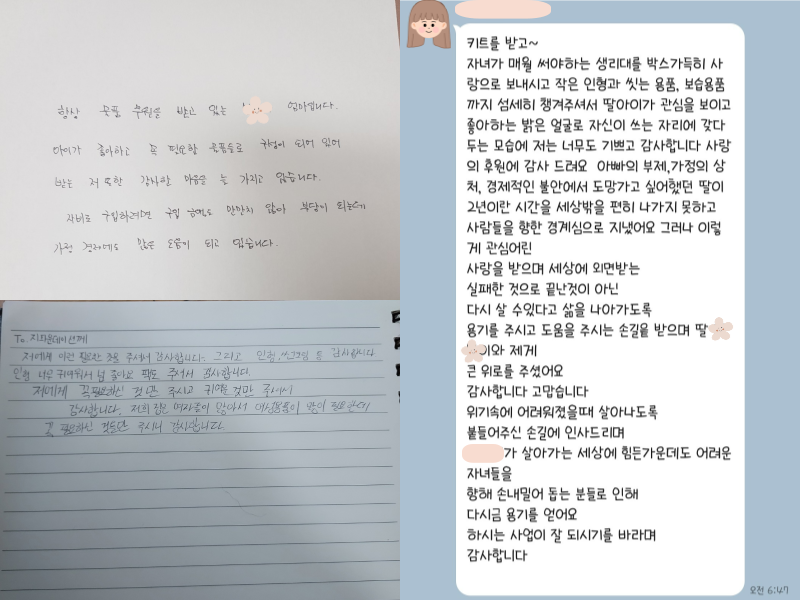 항상 꼭필 후원을 받고 있는 엄마입니다.
아이가 좋아하고 꼭 필요한 용품들로 구성이 되어 있어
받는 저 또한 감사한 마음을 늘 가지고 있습니다.
사비로 구입하려면 구입 금액도 만만치 않아 부담이 되는데
가정 경제에도 많은 도움이 되고 있습니다.
To. 지파운데이션께
저에게 이런 필요한 것을 주셔서 감사합니다. 그리고 인형, 쓰고 등 감사합니다
인형 너무 귀여워서 넘 좋아요 팩도 주셔서 감사합니다.
저에게 꼭필요하신 것만 주시고 귀여운 것만 주셔서
감사합니다. 저희 집은 여자들이 많아서 여성용품이 많이 필요한데
꼭 필요하신 것들만 주시니 감사합니다.
키트를 받고~
자녀가 매월 써야하는 생리대를 박스가득히 사
랑으로 보내시고 작은 인형과 씻는 용품, 보습용품
까지 섬세히 챙겨주셔서 딸아이가 관심을 보이고
좋아하는 밝은 얼굴로 자신이 쓰는 자리에 갖다
두는 모습에 저는 너무도 기쁘고 감사합니다 사랑
의 후원에 감사 드려요 아빠의 부제,가정의 상
처, 경제적인 불안에서 도망가고 싶어했던 딸이
2년이란 시간을 세상밖을 편히 나가지 못하고
사람들을 향한 경계심으로 지냈어요 그러나 이렇
게 관심어린
사랑을 받으며 세상에 외면받는
실패한 것으로 끝난것이 아닌
다시 살 수있다고 삶을 나아가도록
용기를 주시고 도움을 주시는 손길을 받으며 딸
이와 제게
큰 위로를 주셨어요
감사합니다 고맙습니다
위기속에 어려워졌을때 살아나도록
붙들어주신 손길에 인사드리며
가 살아가는 세상에 힘든가운데도 어려운
자녀들을
향해 손내밀어 돕는 분들로 인해
다시금 용기를 얻어요
하시는 사업이 잘 되시기를 바라며
감사합니다
오전 6:47